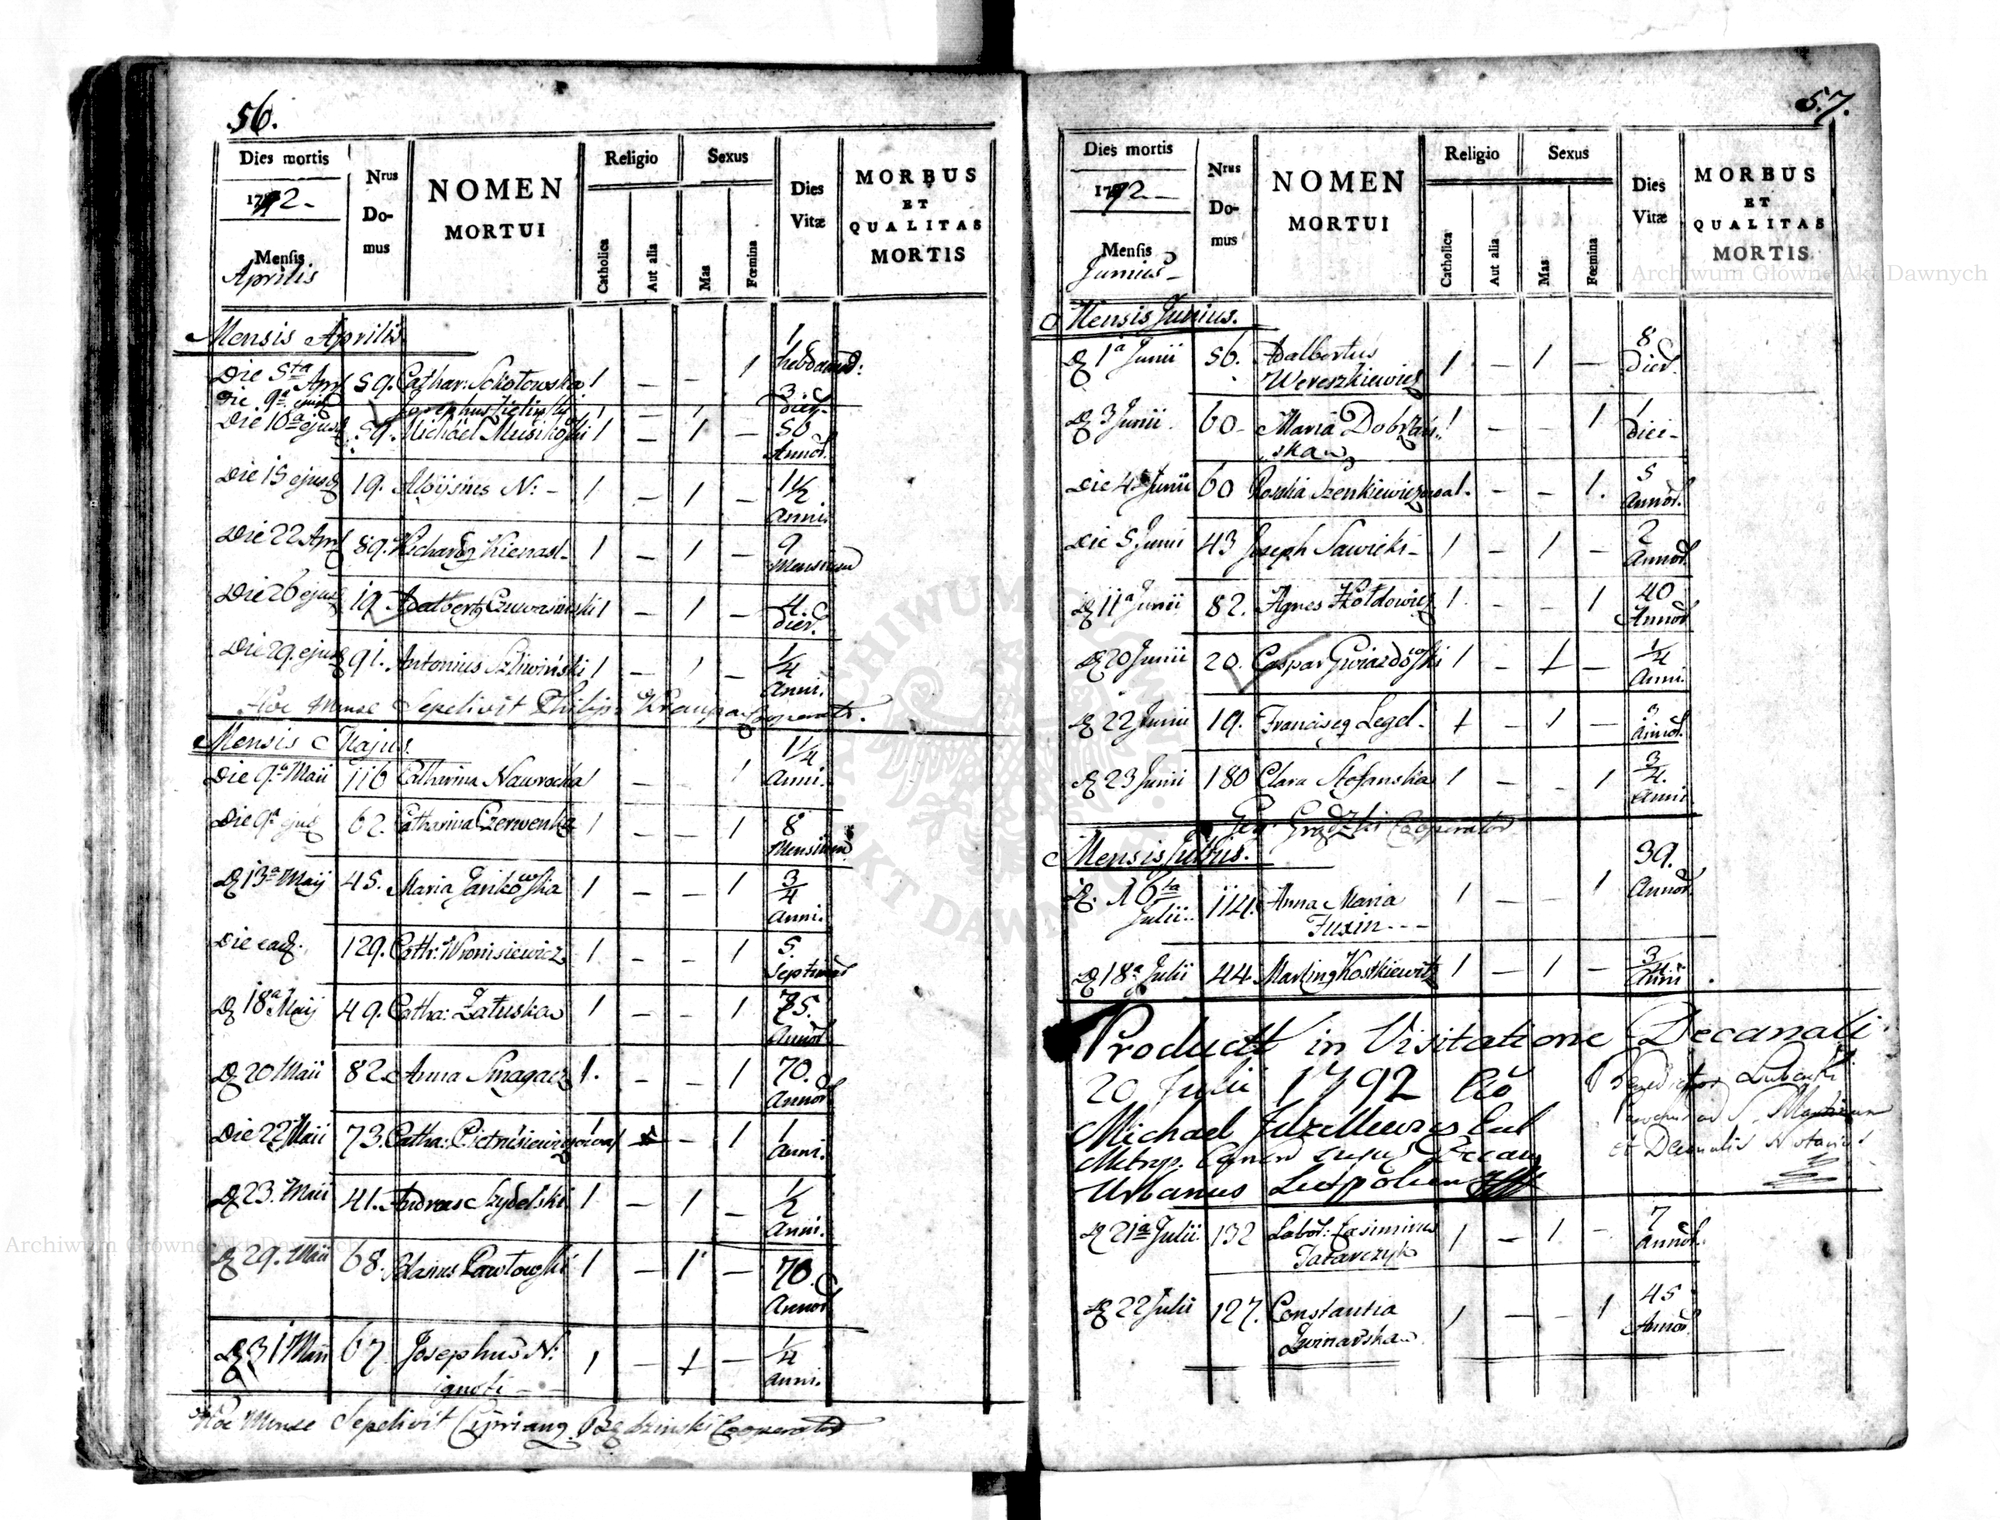 56.
Dies mortis
1792.
Mensis
Aprilis
Nrus Domus
NOMEN
MORTUI
Religio
Catholica
Aut alia
Sexus
Mas
Fœmina
Dies
Vitæ
MORBUS
ET
QUALITAS
MORTIS
Mensis Aprilis.
Die 5ta Apr 59. Cathar: Sokołowska 1 — — 1 1 hebdomad:
Die 9a ejusd Josephus 1 — 1 3 dier.
Die 10a ejusd 79. Michael Musikoski 1 — 1 — 50 Annor.
Die 15 ejusd 19. Aloijsius N: — 1 — 1 — 1½ Anni.
Die 22 Apr 89. Richardg Kienast — 1 — 1 — 9 Mensium
Die 26 ejusd 19. Adalbertg 1 — 1 — 4. dier.
Die 29. ejusd 91. Antonius Szliwiński 1 — 1 — ¼ Anni.
Hoc Mense Sepelivit Philipp Cooperator.
Mensis Majus.
Die 9a Maii 116 Catharina Nawrocka 1 — 1 1¼ Anni.
Die 9a ejusd 62. Catharina Czerwenka 1 — — 1 8 Mensium
D 13a Maij 45. Maria Jankowska 1 — — 1 ¾ Anni.
Die ead. 129. Cath: Wronisiewicz 1 — — 1 5. Septiman
D 18a Maij 49. Catha: Załuska 1 — — 1 75. Annor
D 20 Maii 82. Anna Smagacz 1. — — 1 70. Annor
Die 22 Maii 73. Catha: 1 — 1 1 Anni.
D 23. Maii 41. Andreas Szydelski 1 — 1 — ½ Anni.
D 29. Maii 68. Pawłowski 1 — 1 — 70. Annor
D 31 Maii 67. Josephus N: 1 — 1 — ¼ Anni.
ignoti
Hoc Mense Sepelivit Cipriang Będzinski Cooperator
57.
Dies mortis
1792.
Mensis
Junius
Nrus Domus
NOMEN
MORTUI
Religio
Catholica
Aut alia
Sexus
Mas
Fœmina
Dies
Vitæ
MORBUS
ET
QUALITAS
MORTIS
Mensis Junius.
D 1a Junii 56. Adalbertus 1 1 — 8 Dier.
Wereszkiewicz
D 3 Junii 60 Maria Dobrzań- 1 1 1 Diei
skaw
Die 4. Junii 60 Rosalia Szenkiewiczowa 1. — — 1. 5 Annor.
Die 5 Junii 43 Joseph Sawicki — 1 — 1 — 2 Annor.
D 11a Junii 82. Agnes Hołdowicz 1. — — 1 40 Annor
D 20 Junii 20. Caspar Gwiazdowski 1 — 1 — ¼ Anni.
D 22 Junii 19. Franciscg Legel. 1 — 1 — 3 Annor.
D 23 Junii 180 Clara Stefanska 1 — — 1 ¾ Anni
Greg. Grądzki Cooperator
Mensis Julius.
D. 16ta Julii 114. Anna Maria 1 — — 1 39. Annor.
Fuxin
D 18a Julii 44. Marting Kostkiewitz 1 — 1 — ¾ Anni.
Product in Visitatione Decanali
20 Julii 1792 Ao
Michael
Metrop.
Urbanus
Benedictus
ad S. Martinum
et Decanalis Notarius
D 21a Julii 132 Labor: Casimirus 1 — 1 — 7 Annor.
Tatarczyk
D 22 Julii 127. Constantia 1 — — 1 45 Annor.
Zwinarska
Archiwum Główne Akt Dawnych
Archiwum Główne Akt Dawnych
ARCHIWUM GŁÓWNE AKT DAWNYCH